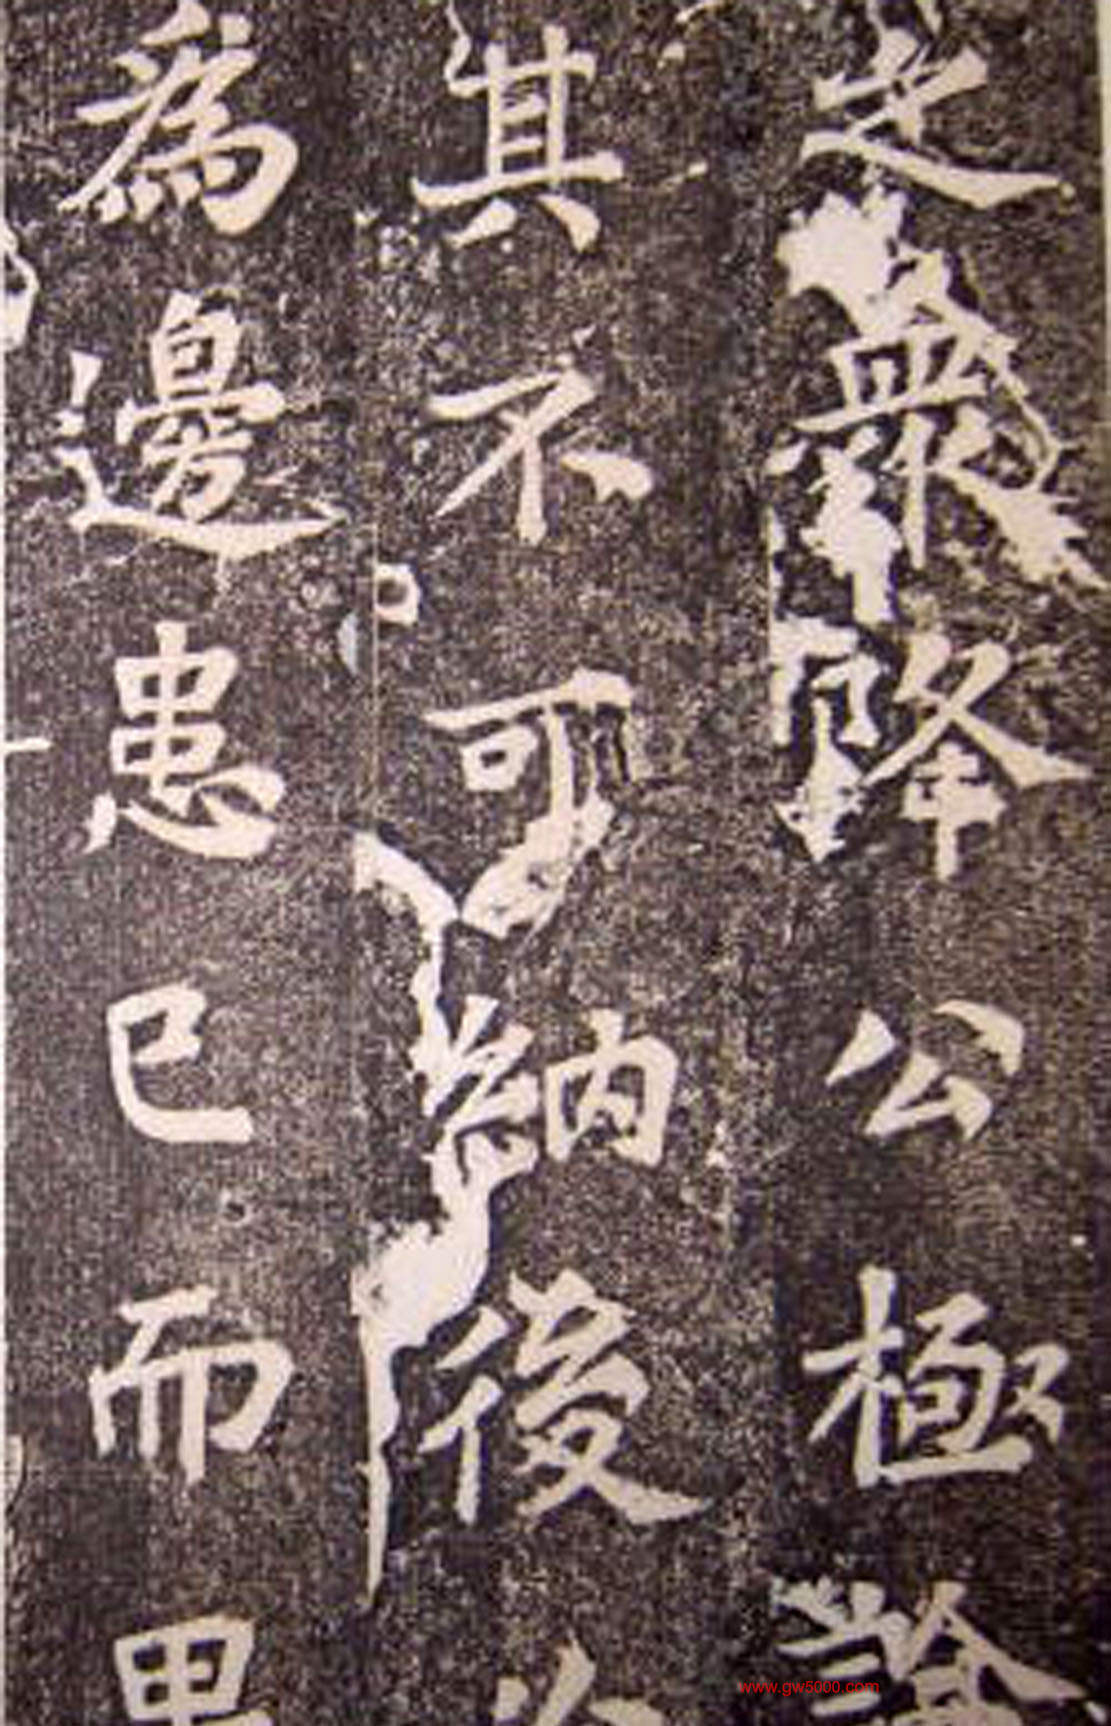 之眾降公極論
其不可納後必
為邊患已而果
www.gw5000.com